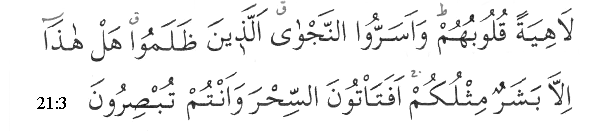 لَاهِيَةً قُلُوْبُهُمْ ؕ وَاَسَرُّوا النَّجْوٰى ۖ ق الَّذِيْنَ ظَلَمُوْا ۖ ق هَلْ هٰذَاۤ
اِلَّا بَشَرٌ مِّثْلُكُمْ ۚ اَفَتَاْتُوْنَ السِّحْرَ وَاَنْتُمْ تُبْصِرُوْنَ 21:3